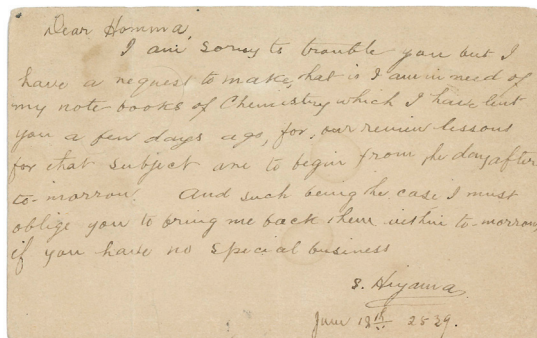 Dear Homma,
I am sorry to trouble you but I
have a request to make, that is I am in need of
my note-books of Chemistry which I have lent
you a few days ago, for, our review lessons
for that subject are to begin from the day after
to-morrow. And such being the case I must
oblige you to bring me back them within to-morrow,
if you have no special business
S. Hiyama
June 18th 2539.